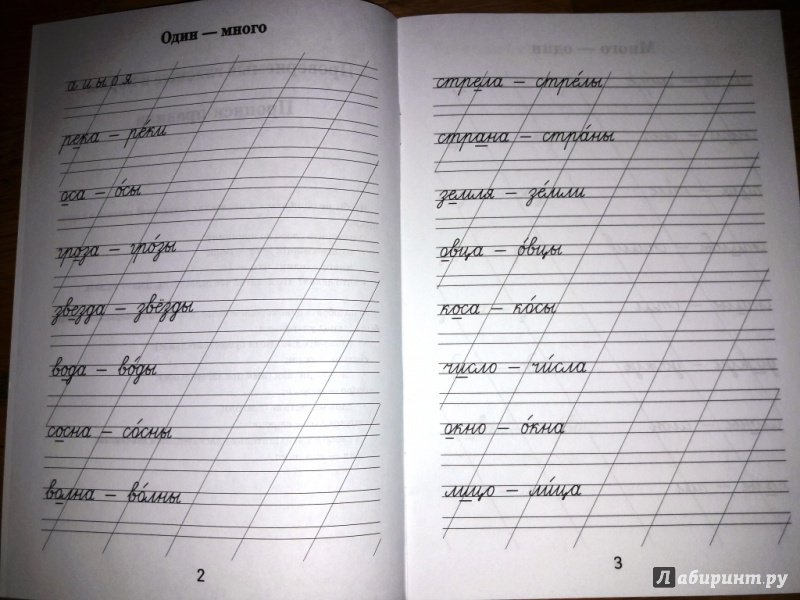 Один — много
а и ы о я
река — ре́ки
оса — о́сы
гроза — гро́зы
звезда — звёзды
вода — во́ды
сосна — со́сны
волна — во́лны
2
стрела — стре́лы
страна — стра́ны
земля — зе́мли
овца — о́вцы
коса — ко́сы
число — чи́сла
окно — о́кна
лицо — ли́ца
3
Лабиринт.ру